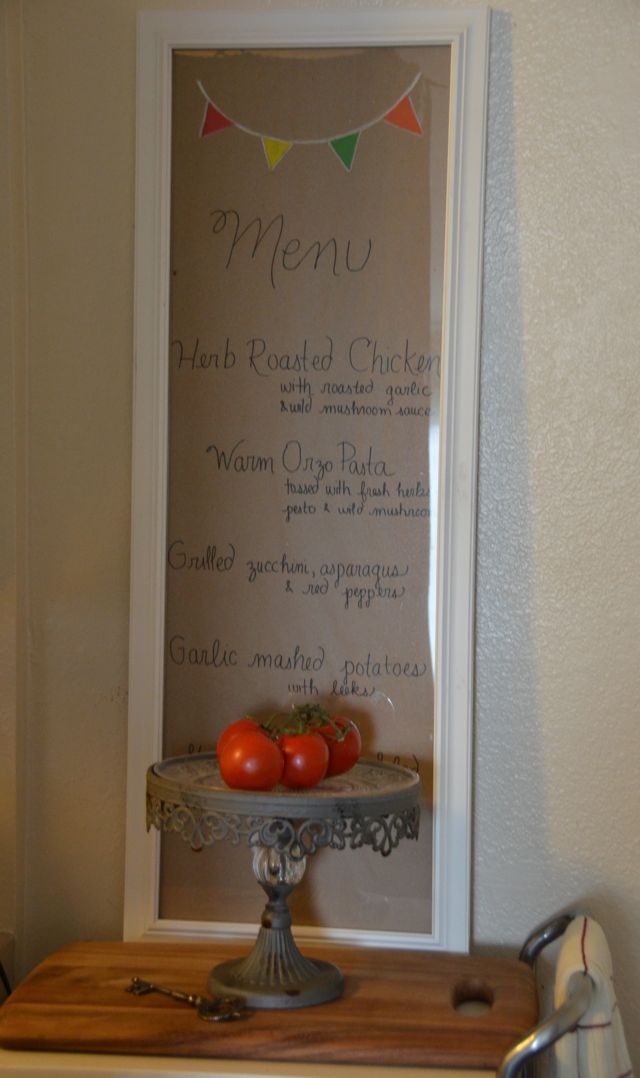 Menu
Herb Roasted Chicken
with roasted garlic
& wild mushroom sauce
Warm Orzo Pasta
tossed with fresh herbs
pesto & wild mushroom
Grilled zucchini, asparagus
& red peppers
Garlic mashed potatoes
with leeks